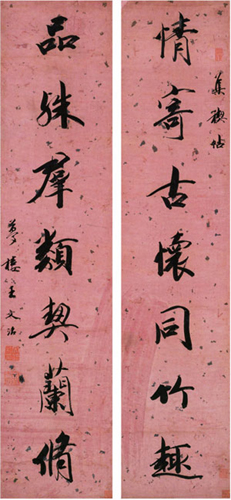 情寄古懷同竹趣
集禊帖
品殊群類契蘭脩
夢樓王文治